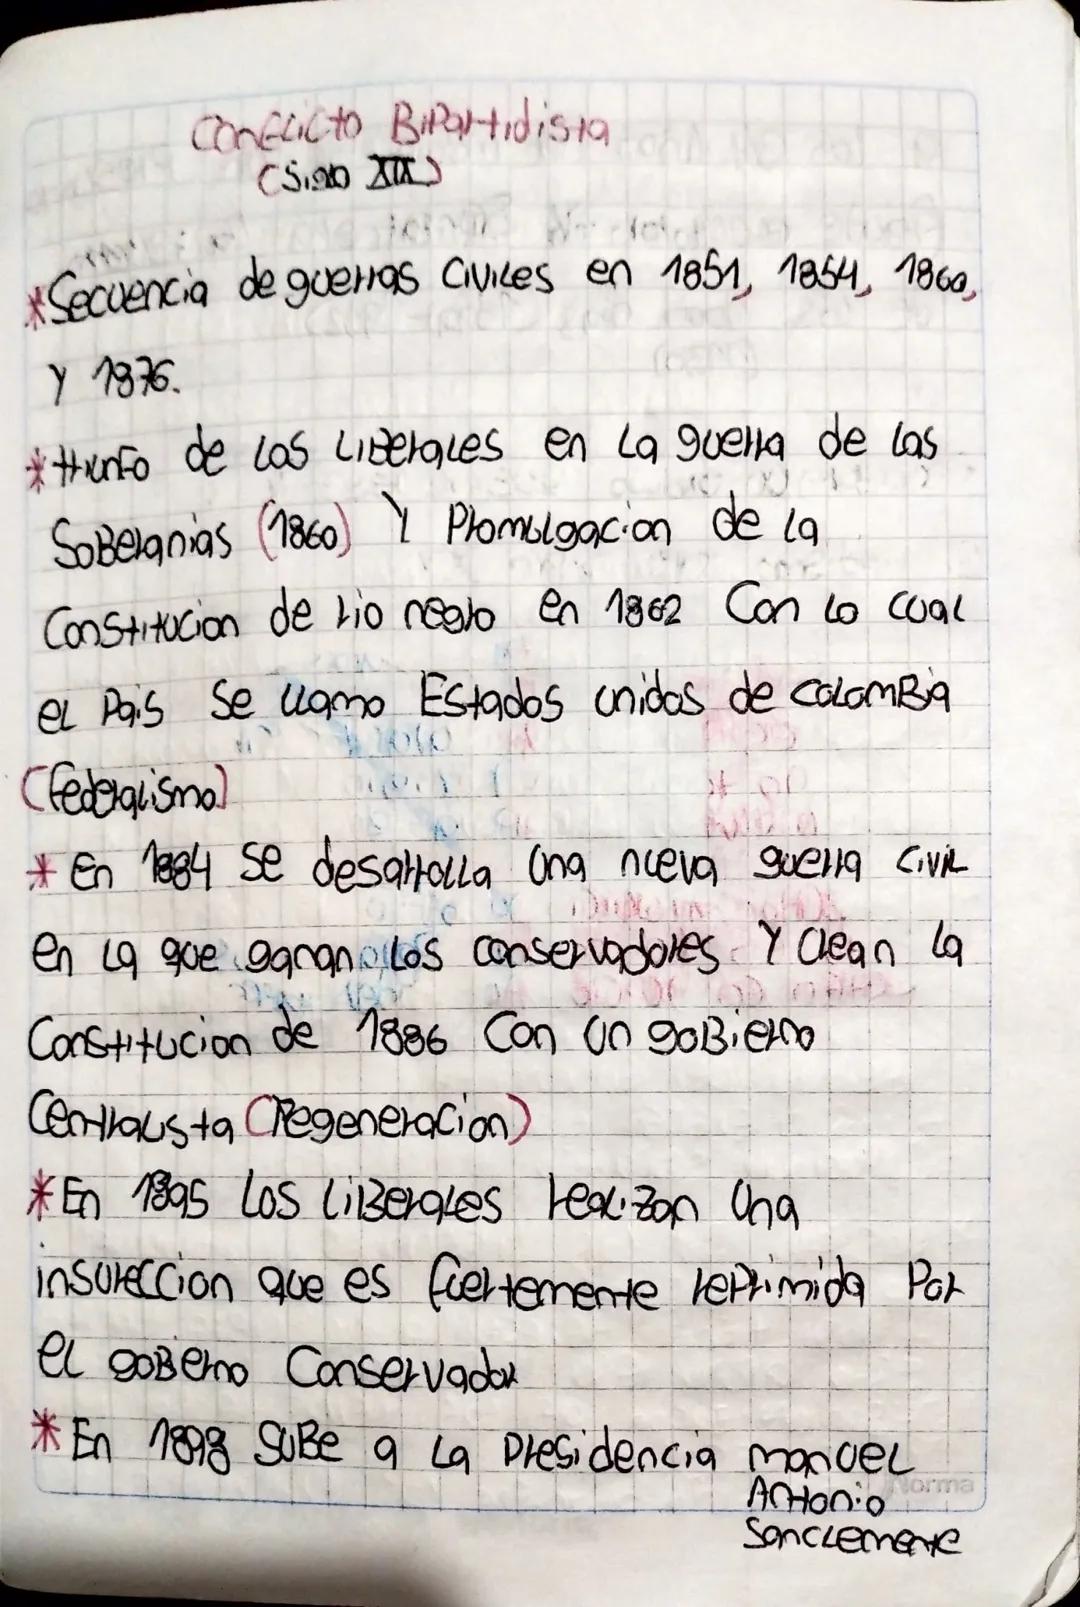 Conflicto Bipartidista
(Siglo XIX)
*Secuencia de guerras civiles en 1851, 1854, 1860,
y 1876.
*triunfo de los Liberales en la guerra de las
Soberanias (1860) Y Promulgacion de la
Constitucion de rio negro en 1862 Con lo cual
el Pais Se llamo Estados unidos de colombia
(federalismo)
* En 1884 Se desarrolla una nueva guerra civil
en la que ganan los conservadores Y Crean la
Constitucion de 1886 Con un gobierno
Centralista (Regeneracion)
*En 1895 Los liberales realizan una
insureccion que es fuertemente reprimida Por
el goberno Conservador
*En 1898 Sube a la Presidencia manuel
Antonio
Sanclemente
Norma